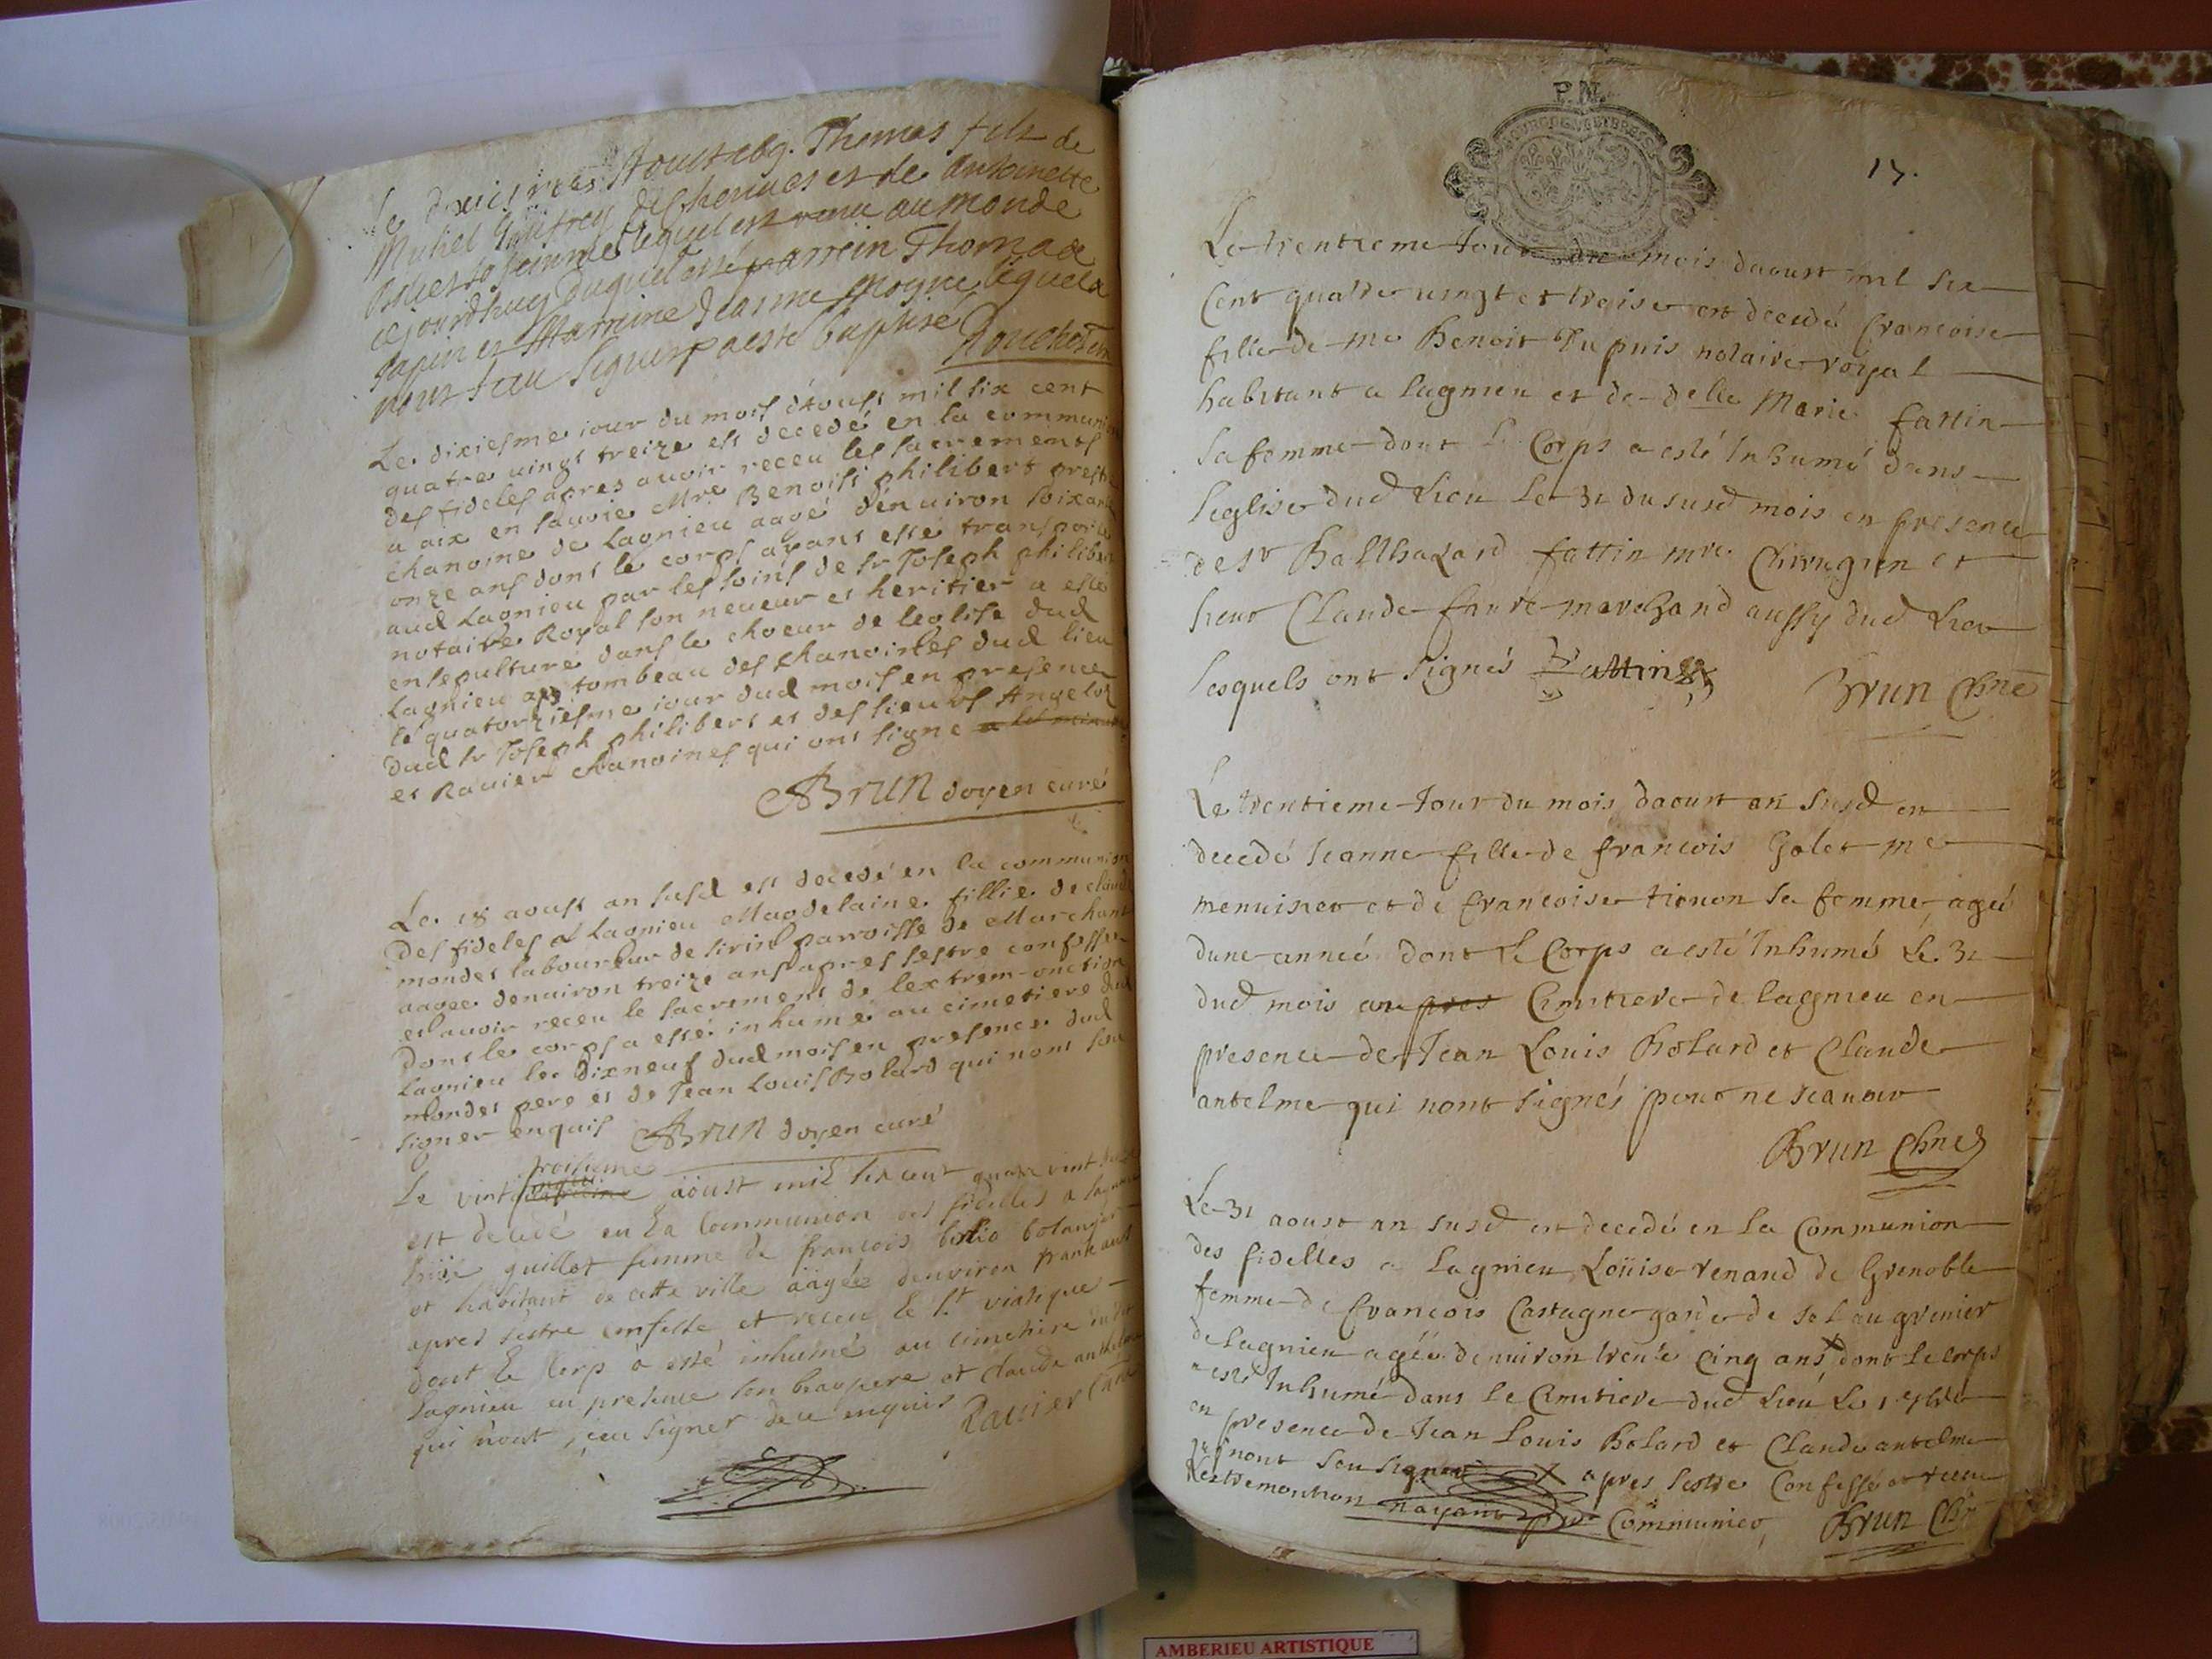 Le Aoust 1693. Thomas fils de
Michel de Chenues et de Antoinette
sa femme lequel est venu au monde
cejourdhuy duquel est parrein Thomas
Papin et Marrine Jeanne Moyne lequel a
seigneur a esté baptisé
Le dixiesme iour du mois d'Aoust mil six cent
quatre uingt treize est decedé en la communion
des fideles apres auoir receu les sacrements
a aix en sauoie Mre Benoist philibert prestre
chanoine de Lagnieu aagé d'enuiron soixante
onze ans dont le corps ayant esté transporté
aud Lagnieu par les soins de sr Joseph philibert
notaire Royal son neueur et heritier a esté
ensepulturé dans le choeur de leglise dud
Lagnieu au tombeau des chanoines dud lieu
le quatorziesme iour dud mois en presence
dud sr Joseph philibert et des sieurs Angelot
et Rauier chanoines qui ont signe
Brun doyen curé
Le 18 aoust an susd est decedé en la communion
des fideles a Lagnieu Magdelaine fillie de claude
mondet laboureur de parroisse de Marchant
aagee denuiron treize ans apres sestre confessee
et auoir receu le sacrement de lextrem-onction
dont le corps a esté inhumé au cimetiere dud
Lagnieu le dixneuf dud mois en presence dud
mondet pere et de Jean Louis Bolard qui nont sceu
signer enquis Brun doyen curé
Le vint troisieme aoust mil six cent quatre vint
est decedé en la Communion des fidelles a Lagnieu
guillot femme de francois bolanger
et habitant de cette ville äagée denviron trante ans
apres sestre confesse et receu le St viatique
dont le Corp à esté inhumé au cimetiere dudit
Lagnieu en presence son beaupere et claude anthelme
qui n'ont sceu signer de ce enquis Rauier
P.N.
BOURGOGNE ET BRESSE
17.
Le trentieme Jour du mois daoust mil six
Cent quatre uingt et treise est decedé Francoise
fille de me Benoit Dupuis notaire royal
habitant a lagnieu et de delle Marie fattin
sa femme dont le Corps a esté Inhumé dans
leglise dud Lieu le 31 du susd mois en presence
de sr Balthazard fattin mre Chirugien et
sieur Claude faure marchand aussy dud Lieu
lesquels ont signés Fattin
Brun Chne
Le trentieme Jour du mois daoust an susd est
decedé Jeanne fille de francois Golet me
menuisier et de francoise tienon sa femme agée
dune année dont le Corps a esté Inhumé Le 31
dud mois au pres Cimitiere de lagnieu en
presence de Jean Louis Bolard et Claude
antelme qui nont signés pour ne scauoir
Brun Chne
Le 31 aoust an susd est decedé en la Communion
des fidelles a Lagnieu Loüise renaud de Grenoble
femme de francois Castagne garde de sel au grenier
de lagnieu agée denuiron trente Cinq ans X dont le corps
a esté Inhumé dans le Cimitiere dud Lieu Le 1 7bre
en presence de Jean Louis Bolard et Claude antelme
qui nont sceu signer X apres sestre Confessé et receu
Lextremonction nayant peu Communier Brun Chne
AMBERIEU ARTISTIQUE